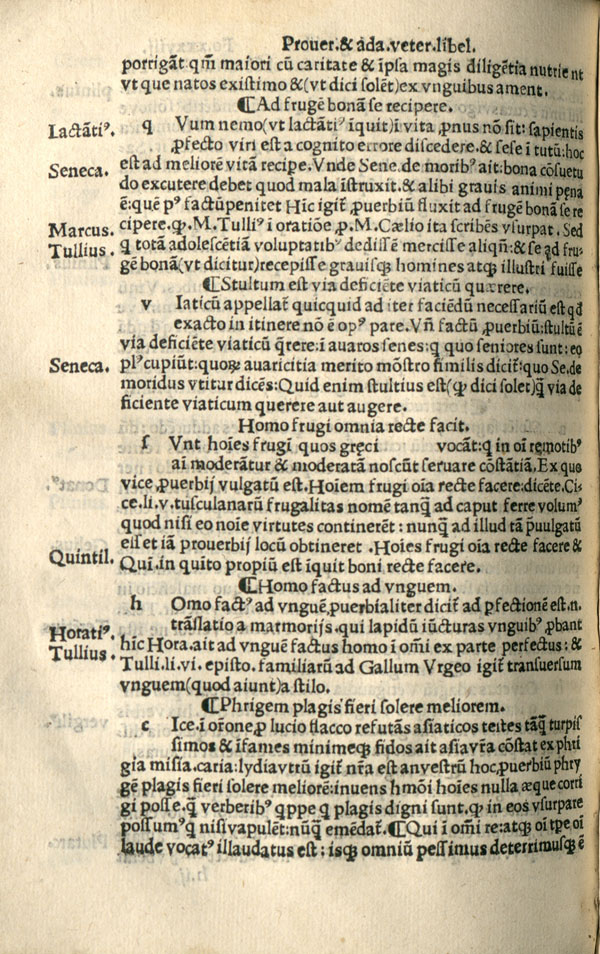 Prouer.& ada.veter.libel.
porrigãt qm̃ maiori cũ caritate & ĩpsa magis diligẽtia nutrient
vt que natos existimo &(vt dici solẽt)ex vnguibus ament.
¶Ad frugẽ bonã se recipere.
Lactãtiꝰ.
q Vum nemo(vt lactãtiꝰ ĩquit)ĩ vita ꝓnus nõ sit: sapientis
ꝓfecto viri est a cognito errore discedere.& sese ĩ tutũ:hoc
Seneca.
est ad meliorẽ vitã recipe.Vnde Sene.de moribꝰ ait:bona cõsuetu
do excutere debet quod mala ĩstruxit.& alibi grauis animi pena
ẽ:quẽ pꝰ factũpenitet Hic igit̃ ꝓuerbiũ fluxit ad frugẽ bonã se re
Marcus.
Tullius.
cipere.ꝙ.M.Tulliꝰ ĩ oratiõe ꝓ.M.Cælio ita scribẽs vsurpat.Sed
q totã adolescẽtiã voluptatibꝰ dedissẽt mercisse aliqñ:& se ad fru
gẽ bonã(vt dicitur)recepisse grauisqꝫ homines atqꝫ illustri fuisse
¶Stultum est via deficiẽte viaticũ quærere.
v Iaticũ appellat̃ quicquid ad iter faciẽdũ necessariũ est qd
exacto in itinere nõ ẽ opꝰ pare.Vñ factũ ꝓuerbiũ:stultũ ẽ
via deficiẽte viaticũ q̃rere:ĩ auaros senes:q quo seniores sunt:eo
Seneca.
plꝰcupiũt:quoꝝ auaricitia merito mõstro similis dicit̃:quo Se.de
moridus vtitur dicẽs:Quid enim stultius est(ꝙ dici solet)q̃ via de
ficiente viaticum querere aut augere.
Homo frugi omnia recte facit.
ſ Vnt hoĩes frugi quos gręci vocãt:q in oĩ remotibꝰ
aĩ moderãtur & moderatã noscũt seruare cõstãtiã.Ex quo
vice ꝓuerbij vulgatũ est.Hoĩem frugi oĩa recte facere:dicẽte.Ci⸗
ce.li.v.tusculanarũ frugalitas nomẽ tanq̃ ad caput ferre volumꝰ
quod nisi eo noĩe virtutes continerẽt: nunq̃ ad illud tã p̃uulgatũ
esset iã prouerbij locũ obtineret .Hoĩes frugi oĩa recte facere &
Quintil.
Qui.in quito propiũ est iquit boni recte facere.
¶Homo factus ad vnguem.
h Omo factꝰ ad vnguẽ ꝓuerbialiter dicit̃ ad ꝑfectionẽ est.n.
Horatiꝰ.
Tullius.
trãslatio a marmorijs.qui lapidũ iũcturas vnguibꝰ ꝓbant
hic Hora.ait ad vnguẽ factus homo ĩ oĩmi ex parte perfectus: &
Tulli.li.vi.episto.familiarũ ad Gallum Vrgeo igit̃ transuersum
vnguem(quod aiunt)a stilo.
¶Phrigem plagis fieri solere meliorem.
c Ice.ĩ orõne ꝓ lucio flacco refutãs asiaticos testes tãq̃ turpis
simos & ĩfames minimeqꝫ fidos ait asia vr̃a cõstat ex phri
gia misia.caria:lydia vtrũ igit̃ nr̃a est an vestrũ hoc ꝓuerbiũ phry
gẽ plagis fieri solere meliorẽ:inuens hmõi hoĩes nulla æque corri
gi posse.q verberibꝰ qppe q plagis digni sunt.ꝙ in eos vsurpare
possumꝰ q nisi vapulẽt:nũq̃ emẽdat̃.¶Qui ĩ oĩmi re:atqꝫ oĩ tp̃e oĩ
laude vocatꝰ illaudatus est: isqꝫ omniũ pessimus deterrimusqꝫ ẽ